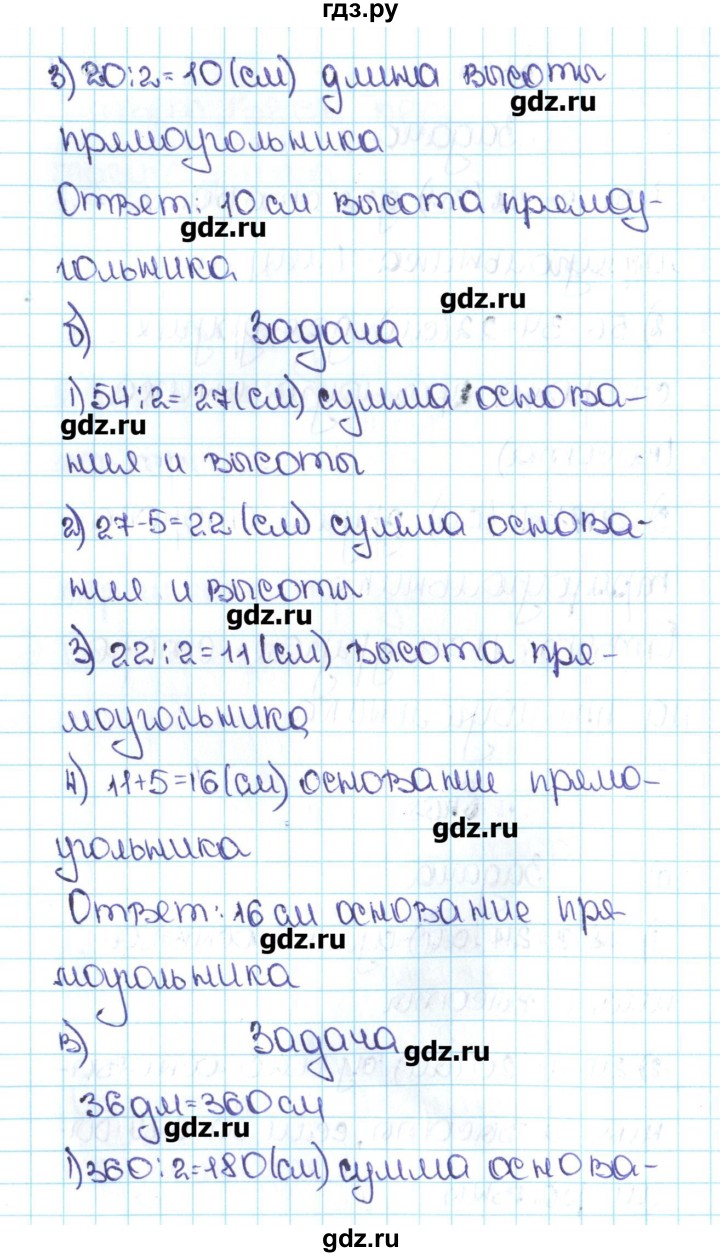 гдз.ру
3) 20:2=10(см) длина высоты
gdz.ru
прямоугольника
Ответ: 10 см высота прямоу-
gdz.ru
гольника
gdz.ru
б) Задача
1) 54:2=27(см) сумма основа-
gdz.ru
ния и высоты
2) 27-5=22(см) сумма основа-
ния и высоты
gdz.ru
3) 22:2=11(см) высота пря-
моугольника
4) 11+5=16(см) основание прямо-
gdz.ru
угольника
Ответ: 16 см основание пря-
gdz.ru
моугольника
в) Задача
gdz.ru
36 дм=360 см
gdz.ru
1) 360:2=180(см) сумма основа-
gdz.ru